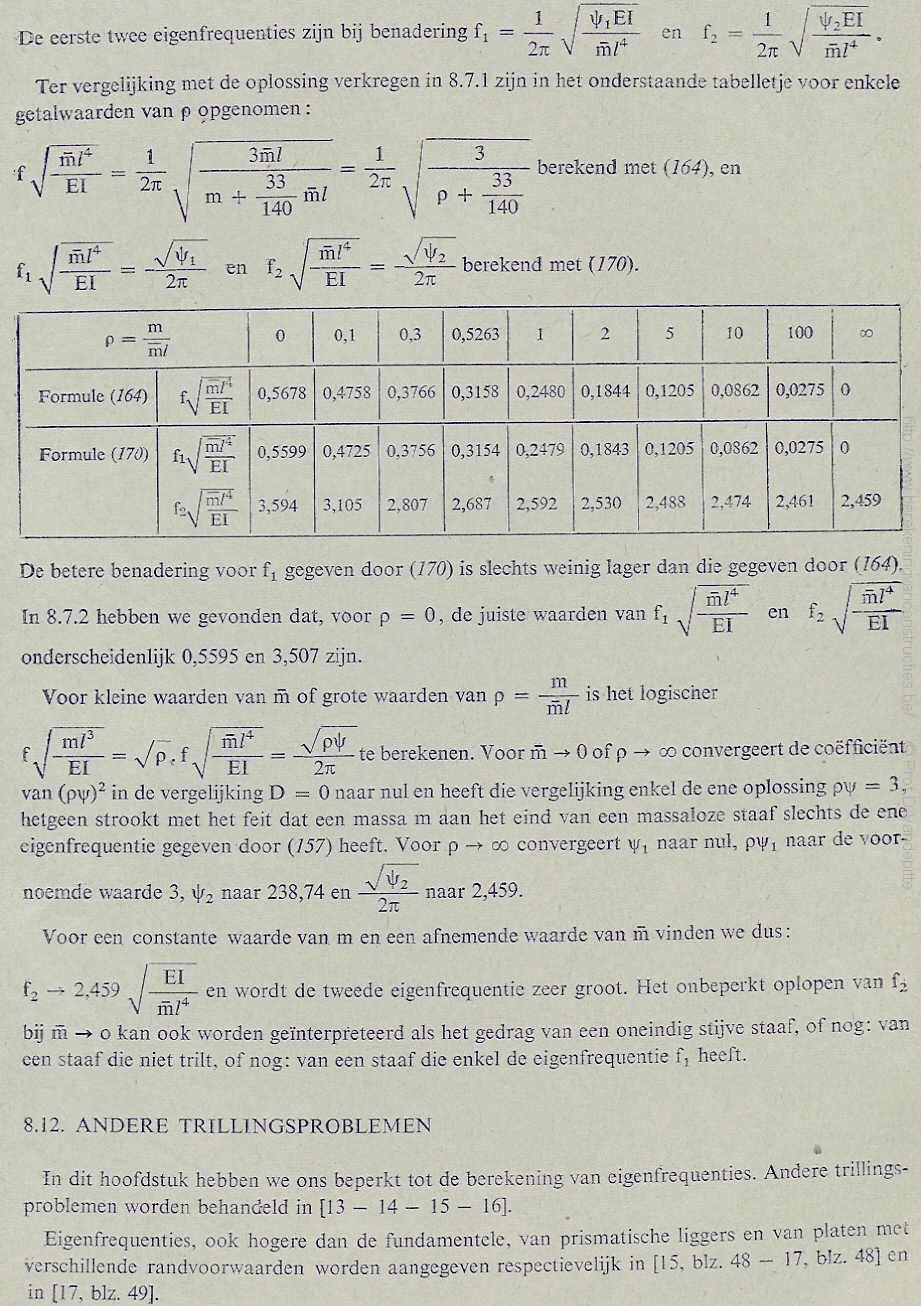 De eerste twee eigenfrequenties zijn bij benadering f₁ = 1/2π √(ψ₁EI / m̄l⁴) en f₂ = 1/2π √(ψ₂EI / m̄l⁴).
Ter vergelijking met de oplossing verkregen in 8.7.1 zijn in het onderstaande tabelletje voor enkele
getalwaarden van ρ opgenomen :
f √(m̄l⁴ / EI) = 1/2π √(3m̄l / (m + 33/140 m̄l)) = 1/2π √(3 / (ρ + 33/140)) berekend met (164), en
f₁ √(m̄l⁴ / EI) = √ψ₁ / 2π en f₂ √(m̄l⁴ / EI) = √ψ₂ / 2π berekend met (170).
ρ = m / m̄l 0 0,1 0,3 0,5263 1 2 5 10 100 ∞
Formule (164) f√(m̄l⁴ / EI) 0,5678 0,4758 0,3766 0,3158 0,2480 0,1844 0,1205 0,0862 0,0275 0
Formule (170) f₁√(m̄l⁴ / EI) 0,5599 0,4725 0,3756 0,3154 0,2479 0,1843 0,1205 0,0862 0,0275 0
f₂√(m̄l⁴ / EI) 3,594 3,105 2,807 2,687 2,592 2,530 2,488 2,474 2,461 2,459
De betere benadering voor f₁ gegeven door (170) is slechts weinig lager dan die gegeven door (164).
In 8.7.2 hebben we gevonden dat, voor ρ = 0, de juiste waarden van f₁ √(m̄l⁴ / EI) en f₂ √(m̄l⁴ / EI)
onderscheidenlijk 0,5595 en 3,507 zijn.
Voor kleine waarden van m̄ of grote waarden van ρ = m / m̄l is het logischer
f √(ml³ / EI) = √ρ . f √(m̄l⁴ / EI) = √ρψ / 2π te berekenen. Voor m̄ → 0 of ρ → ∞ convergeert de coëfficiënt
van (ρψ)² in de vergelijking D = 0 naar nul en heeft die vergelijking enkel de ene oplossing ρψ = 3,
hetgeen strookt met het feit dat een massa m aan het eind van een massaloze staaf slechts de ene
eigenfrequentie gegeven door (157) heeft. Voor ρ → ∞ convergeert ψ₁ naar nul, ρψ₁ naar de voor-
noemde waarde 3, ψ₂ naar 238,74 en √ψ₂ / 2π naar 2,459.
Voor een constante waarde van m en een afnemende waarde van m̄ vinden we dus :
f₂ → 2,459 √(EI / m̄l⁴) en wordt de tweede eigenfrequentie zeer groot. Het onbeperkt oplopen van f₂
bij m̄ → o kan ook worden geïnterpreteerd als het gedrag van een oneindig stijve staaf, of nog: van
een staaf die niet trilt, of nog: van een staaf die enkel de eigenfrequentie f₁ heeft.
8.12. ANDERE TRILLINGSPROBLEMEN
In dit hoofdstuk hebben we ons beperkt tot de berekening van eigenfrequenties. Andere trillings-
problemen worden behandeld in [13 — 14 — 15 — 16].
Eigenfrequenties, ook hogere dan de fundamentele, van prismatische liggers en van platen met
verschillende randvoorwaarden worden aangegeven respectievelijk in [15, blz. 48 — 17, blz. 48] en
in [17, blz. 49].